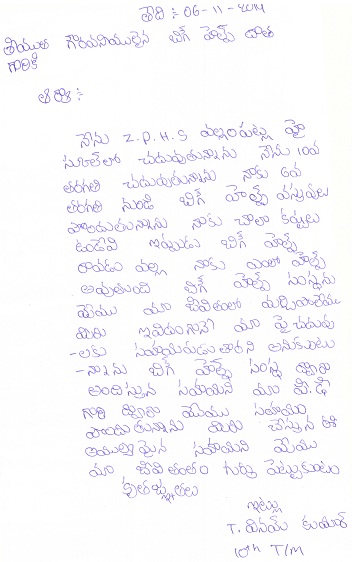 తేది :- 06-11-2014
శ్రీయుత గౌరవనీయులైన బిగ్ హెల్ప్ దాత
గారికి
సార్ :-
నేను Z.P.H.S వల్లంపట్ల హై
స్కూల్‌లో చదువుతున్నాను నేను 10వ
తరగతి చదువుతున్నాను నాకు 6వ
తరగతి నుండి బిగ్ హెల్ప్ వస్తువులు
పొందుతున్నాను నాకు చాలా కష్టాలు
ఉండేవి ఇప్పుడు బిగ్ హెల్ప్
రావడం వల్ల నాకు ఎంతో హెల్ప్
అవుతుంది బిగ్ హెల్ప్ సంస్థను
మేము మా జీవితంలో మర్చిపోలేము
మీరు ఇవిధంగానే మా పై చదువు
-లకు సహాయపడుతారని అనుకుంటు
-న్నాను బిగ్ హెల్ప్ సంస్థ ద్వారా
అందిస్తున్న సహాయని మా పి.డి
గారి ద్వారా మేము సహాయం
పొందుతున్నాను మీరు చేస్తున్న ఈ
అమూల్యమైన సహాయని మేము
మా జీవితంతం గుర్తు పెట్టుకుంటం
కృతజ్ఞతలు
ఇట్లు
T. వినయ్ కుమార్
10th T/M